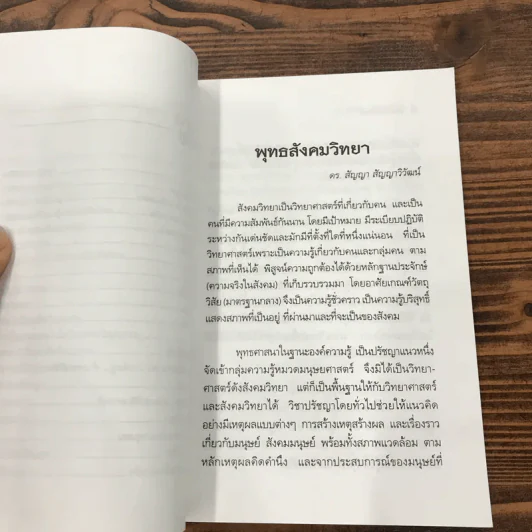 พุทธสังคมวิทยา
ดร. สัญญา สัญญาวิวัฒน์
สังคมวิทยาเป็นวิทยาศาสตร์ที่เกี่ยวกับคน และเป็น
คนที่มีความสัมพันธ์กันนาน โดยมีเป้าหมาย มีระเบียบปฏิบัติ
ระหว่างกันเด่นชัดและมักมีที่ตั้งที่ใดที่หนึ่งแน่นอน ที่เป็น
วิทยาศาสตร์เพราะเป็นความรู้เกี่ยวกับคนและกลุ่มคน ตาม
สภาพที่เห็นได้ พิสูจน์ความถูกต้องได้ด้วยหลักฐานประจักษ์
(ความจริงในสังคม) ที่เก็บรวบรวมมา โดยอาศัยเกณฑ์วัตถุ
วิสัย (มาตรฐานกลาง) จึงเป็นความรู้ชั่วคราว เป็นความรู้บริสุทธิ์
แสดงสภาพที่เป็นอยู่ ที่ผ่านมาและที่จะเป็นของสังคม
พุทธศาสนาในฐานะองค์ความรู้ เป็นปรัชญาแนวหนึ่ง
จัดเข้ากลุ่มความรู้หมวดมนุษยศาสตร์ จึงมิได้เป็นวิทยา-
ศาสตร์ดังสังคมวิทยา แต่ก็เป็นพื้นฐานให้กับวิทยาศาสตร์
และสังคมวิทยาได้ วิชาปรัชญาโดยทั่วไปช่วยให้แนวคิด
อย่างมีเหตุผลแบบต่างๆ การสร้างเหตุสร้างผล และเรื่องราว
เกี่ยวกับมนุษย์ สังคมมนุษย์ พร้อมทั้งสภาพแวดล้อม ตาม
หลักเหตุผลคิดคำนึง และจากประสบการณ์ของมนุษย์ที่